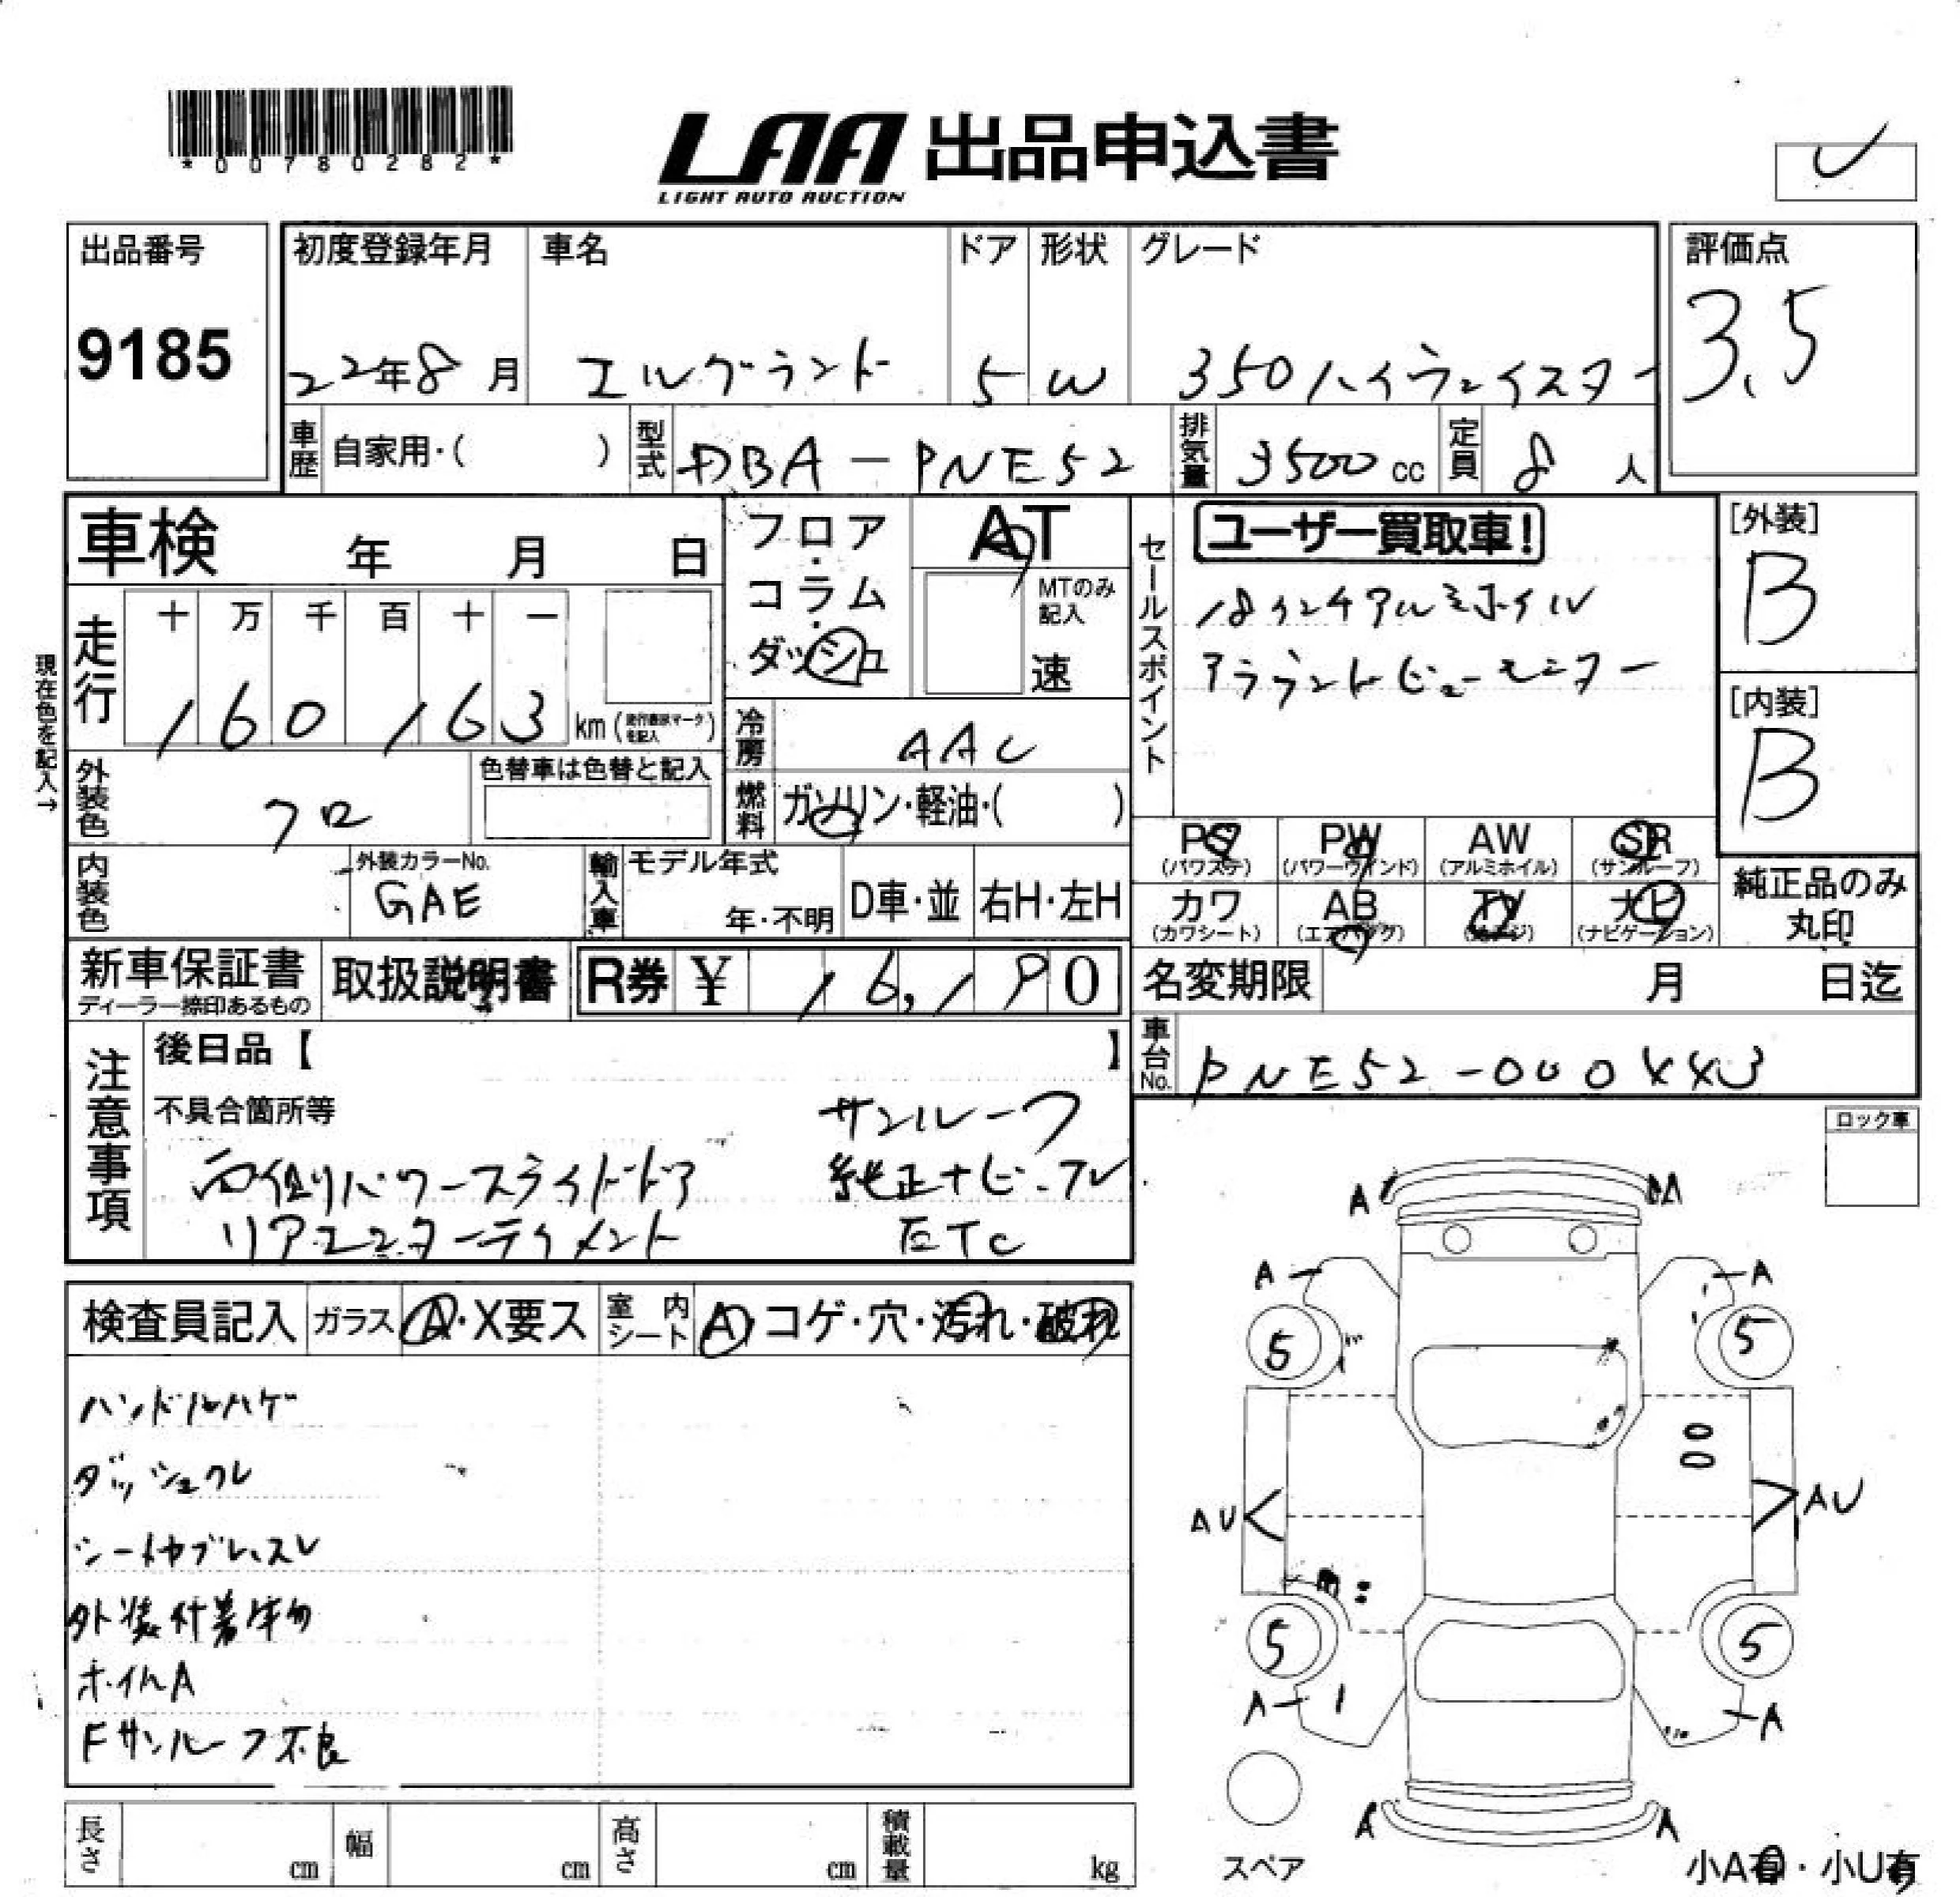 *00780282*
LAA 出品申込書
LIGHT AUTO AUCTION
出品番号
9185
初度登録年月
22年8月
車名
エルグランド
ドア
5
形状
W
グレード
350ハイウェイスター
評価点
3.5
車歴 自家用・( )
型式 DBA-PNE52
排気量 3500 cc
定員 8 人
車検 年 月 日
フロア・コラム・ダッシュ
AT
MTのみ記入
速
セールスポイント
ユーザー買取車!
18インチアルミホイル
アラウンドビューモニター
[外装]
B
[内装]
B
現在色を記入→
走行 十 万 千 百 十 一
160163 km
冷房 AAC
燃料 ガソリン・軽油・( )
外装色 クロ
色替車は色替と記入
内装色
外装カラーNo.
GAE
輸入車
モデル年式
年・不明
D車・並
右H・左H
PS (パワステ)
PW (パワーウインド)
AW (アルミホイル)
SR (サンルーフ)
カワ (カワシート)
AB (エアバッグ)
TV
ナビ (ナビゲーション)
純正品のみ丸印
新車保証書
ディーラー捺印あるもの
取扱説明書
R券 ¥ 16,190
名変期限 月 日迄
車台No. PNE52-000443
注意事項
後日品【 】
不具合箇所等
サンルーフ
両側パワースライドドア 純正ナビ・TV
リアエンターテイメント ETC
ロック車
検査員記入
ガラス A・X要ス
室内シート A・コゲ・穴・汚れ・破れ
ハンドルハゲ
ダッシュワレ
シートヤブレ、スレ
外装付着物
ホイルA
Fサンルーフ不良
A A
A A
5 5
AU AU
5 5
A A
A A
スペア
小A有・小U有
長さ cm
幅 cm
高さ cm
積載量 kg